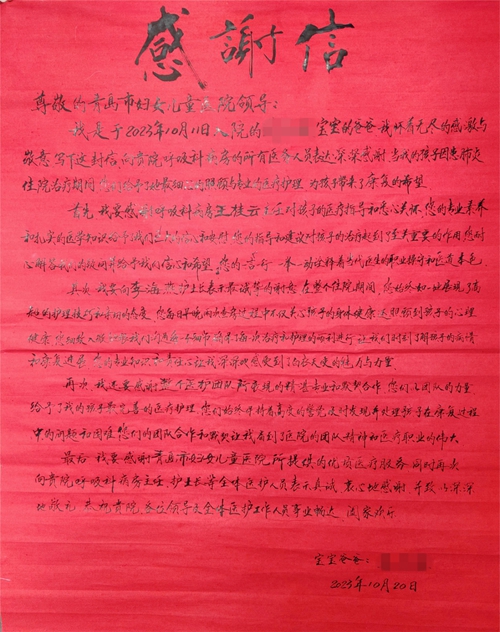 感謝信
尊敬的青岛市妇女儿童医院领导:
我是于2023年10月11日入院的 宝宝的爸爸,我怀着无尽的感激与
敬意写下这封信,向贵院呼吸科病房的所有医务人员表达深深感谢,当我的孩子因患肺炎
住院治疗期间,您们给予了她最细致的照顾与专业的医疗护理,为孩子带来了康复的希望。
首先,我要感谢呼吸科病房王桂云主任对孩子的医疗指导和悉心关怀,您的专业素养
和扎实的医学知识给予我们 您的指导和建议对孩子的治疗起到了至关重要的作用,您耐
心解答我们的疑问并给予我们信心和希望,您的一言一行,一举一动诠释着当代医生的职业操守和医道本色。
其次,我要向李海 护士长表示最诚挚的谢意,在整个住院期间,您始终如一地展现了高
超的护理技巧和 的态度,您每日早晚 不仅关心孩子的身体健康,还照顾到孩子的心理
健康, 治疗和护理的 进行,让我们时刻了解孩子的病情
和康复进展,您的专业知识和 让我深深地感受到了白衣天使的魅力与力量。
再次,我还要感谢整个医护团队所展现的精湛专业和默契合作,您们以团队的力量
给予了我的孩子最完善的医疗护理,您们始终保持着高度的警觉,及时发现并处理孩子在康复过程
中的问题和困难,您们的团队合作和默契让我看到了医院的团队精神和医疗职业的伟大。
最后,我要感谢青岛市妇女儿童医院所提供的优质医疗服务,同时再次
向贵院呼吸科病房主任、护士长等全体医护人员表示真诚、衷心地感谢,并致以深深
地敬礼,恭祝贵院各位领导及全体医护工作人员事业畅达,阖家欢乐。
宝宝爸爸:
2023年10月20日